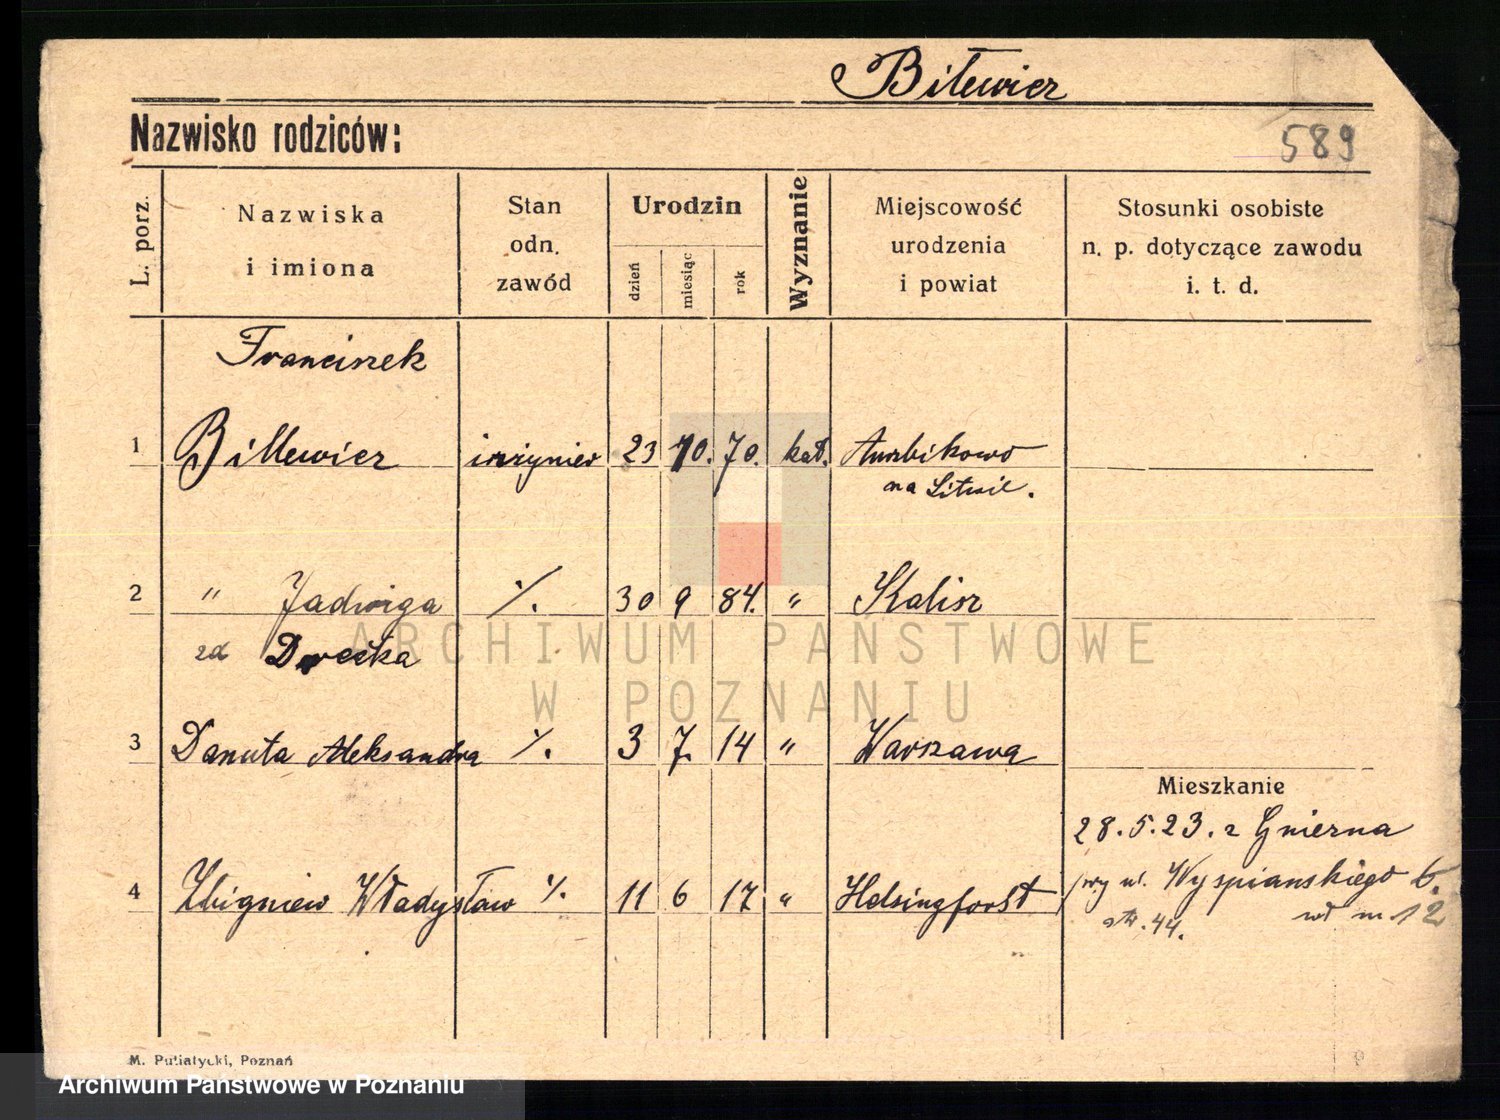 Bilewicz
Nazwisko rodziców:
589
L. porz.
Nazwiska
i imiona
Stan
odn.
zawód
Urodzin
dzień
miesiąc
rok
Wyznanie
Miejscowość
urodzenia
i powiat
Stosunki osobiste
n. p. dotyczące zawodu
i. t. d.
Franciszek
1 Billewicz inżynier 23 10. 70. kat.
na Litwie.
2 " Jadwiga ./. 30 9 84. " Kalisz
zd
3 Danuta Aleksandra ./. 3 7. 14 " Warszawa
Mieszkanie
28.5.23. z Gniezna
4 Zbigniew Władysław ./. 11 6 17 " Helsingforst
przy ul. Wyspiańskiego 6.
44. m 12
M. Putiatycki, Poznań
ARCHIWUM PAŃSTWOWE
W POZNANIU
Archiwum Państwowe w Poznaniu